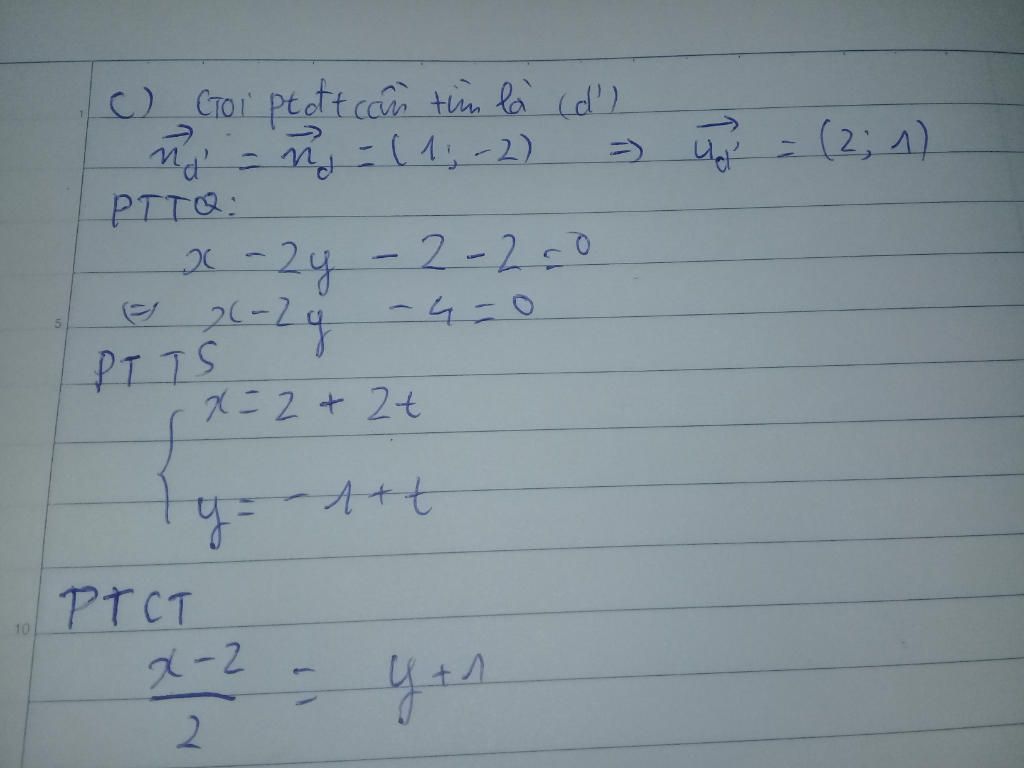 C) Gọi ptđt cần tìm là (d')
→n_d' = →n_d = (1; -2) => →u_d' = (2; 1)
PTTQ:
x - 2y - 2 - 2 = 0
5 <=> x - 2y - 4 = 0
PTTS
{ x = 2 + 2t
y = -1 + t
10 PTCT
x - 2 / 2 = y + 1